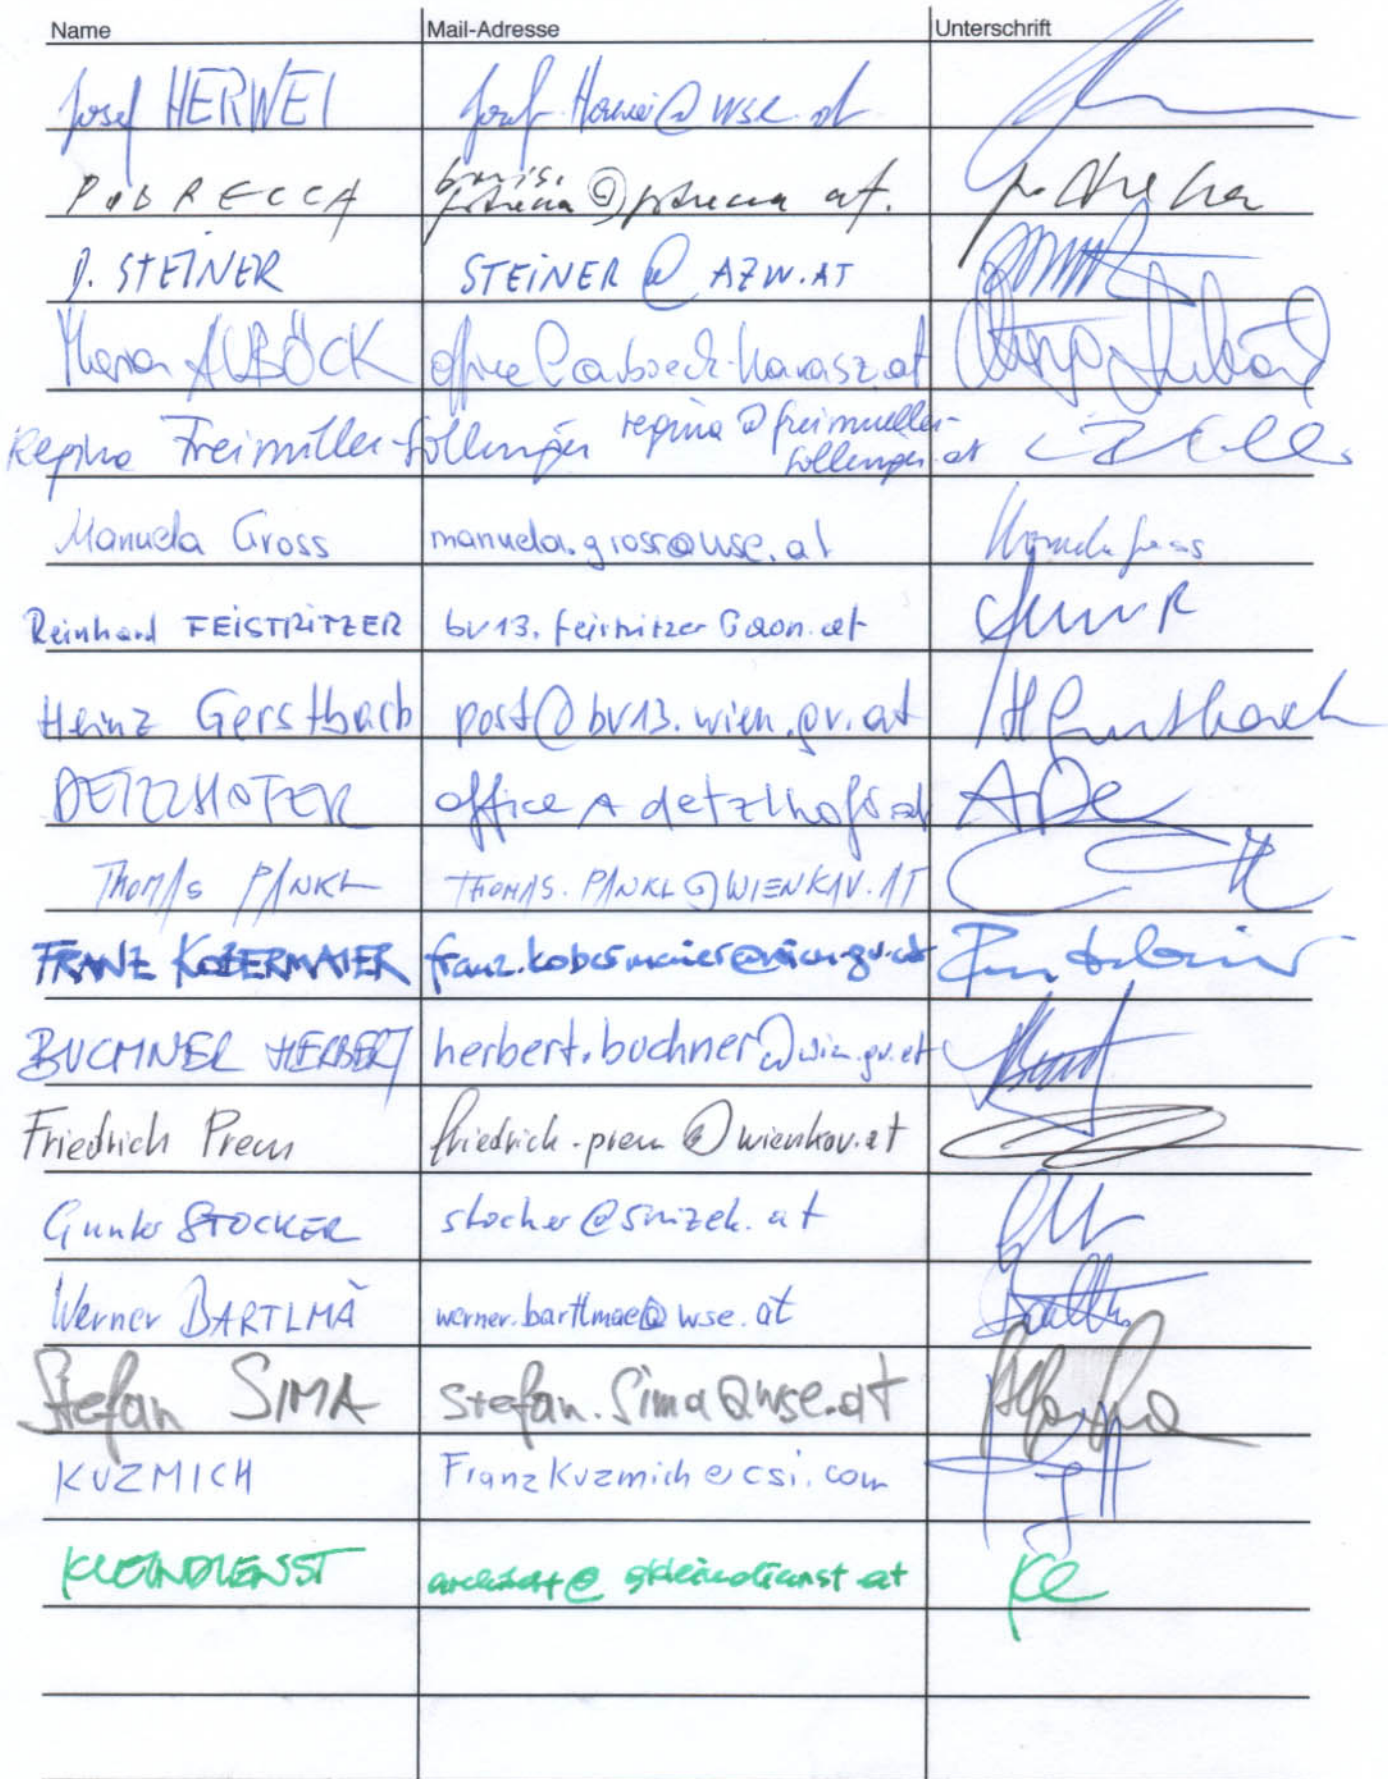 Name Mail-Adresse Unterschrift
Josef HERWEI Josef.Herwei@wse.at
PODRECCA boris.
podrecca@podrecca.at.
D. STEINER STEINER@AZW.AT
Maria AUBÖCK office@auboeck-karasz.at
Regina Freimüller-Söllinger regina@freimueller-
soellinger.at
Manuela Gross manuela.gross@wse.at Manuela Gross
Reinhard FEISTRITZER bv13.feistritzer@aon.at
Heinz Gerstbach post@bv13.wien.gv.at HGerstbach
DETZLHOFER office A detzlhofer.at ADe
THOMAS PANKL THOMAS.PANKL@WIENKAV.AT
FRANZ KOBERMAIER franz.kobermaier@wien.gv.at
BUCHNER HERBERT herbert.buchner@wien.gv.at
Friedrich Prem friedrich.prem@wienkav.at
Gunter STOCKER stocker@snizek.at
Werner BARTLMÄ werner.bartlmae@wse.at
Stefan SIMA Stefan.Sima@wse.at
KUZMICH FranzKuzmich@csi.com
KLEINDIENST architekt@gkleindienst.at Kl